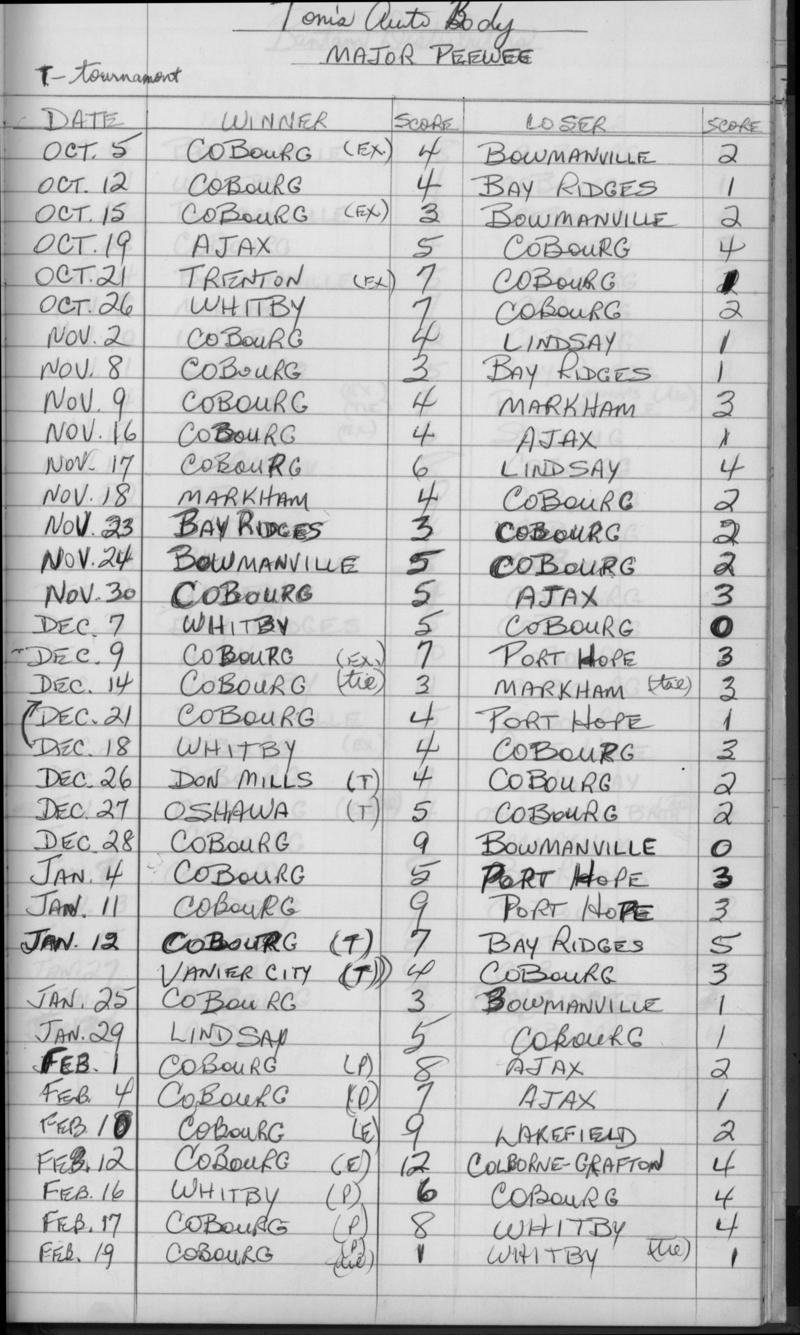 Tom's Auto Body
MAJOR PEEWEE
T- tournament
DATE WINNER SCORE LOSER SCORE
OCT. 5 COBOURG (EX) 4 BOWMANVILLE 2
OCT. 12 COBOURG 4 BAY RIDGES 1
OCT. 15 COBOURG (EX) 3 BOWMANVILLE 2
OCT. 19 AJAX 5 COBOURG 4
OCT. 21 TRENTON (EX) 7 COBOURG 1
OCT. 26 WHITBY 7 COBOURG 2
NOV. 2 COBOURG 4 LINDSAY 1
NOV. 8 COBOURG 3 BAY RIDGES 1
NOV. 9 COBOURG 4 MARKHAM 3
NOV. 16 COBOURG 4 AJAX 1
NOV. 17 COBOURG 6 LINDSAY 4
NOV. 18 MARKHAM 4 COBOURG 2
NOV. 23 BAY RIDGES 3 COBOURG 2
NOV. 24 BOWMANVILLE 5 COBOURG 2
NOV. 30 COBOURG 5 AJAX 3
DEC. 7 WHITBY 5 COBOURG 0
DEC. 9 COBOURG (EX.) 7 PORT HOPE 3
DEC. 14 COBOURG (tie) 3 MARKHAM (tie) 3
DEC. 21 COBOURG 4 PORT HOPE 1
DEC. 18 WHITBY 4 COBOURG 3
DEC. 26 DON MILLS (T) 4 COBOURG 2
DEC. 27 OSHAWA (T) 5 COBOURG 2
DEC. 28 COBOURG 9 BOWMANVILLE 0
JAN. 4 COBOURG 5 PORT HOPE 3
JAN. 11 COBOURG 9 PORT HOPE 3
JAN. 12 COBOURG (T) 7 BAY RIDGES 5
VANIER CITY (T) 4 COBOURG 3
JAN. 25 COBOURG 3 BOWMANVILLE 1
JAN. 29 LINDSAY 5 COBOURG 1
FEB. 1 COBOURG (P) 8 AJAX 2
FEB. 4 COBOURG (P) 7 AJAX 1
FEB. 10 COBOURG (E) 9 WAKEFIELD 2
FEB. 12 COBOURG (E) 12 COLBORNE-GRAFTON 4
FEB. 16 WHITBY (P) 6 COBOURG 4
FEB. 17 COBOURG (P) 8 WHITBY 4
FEB. 19 COBOURG (P) (tie) 1 WHITBY (tie) 1